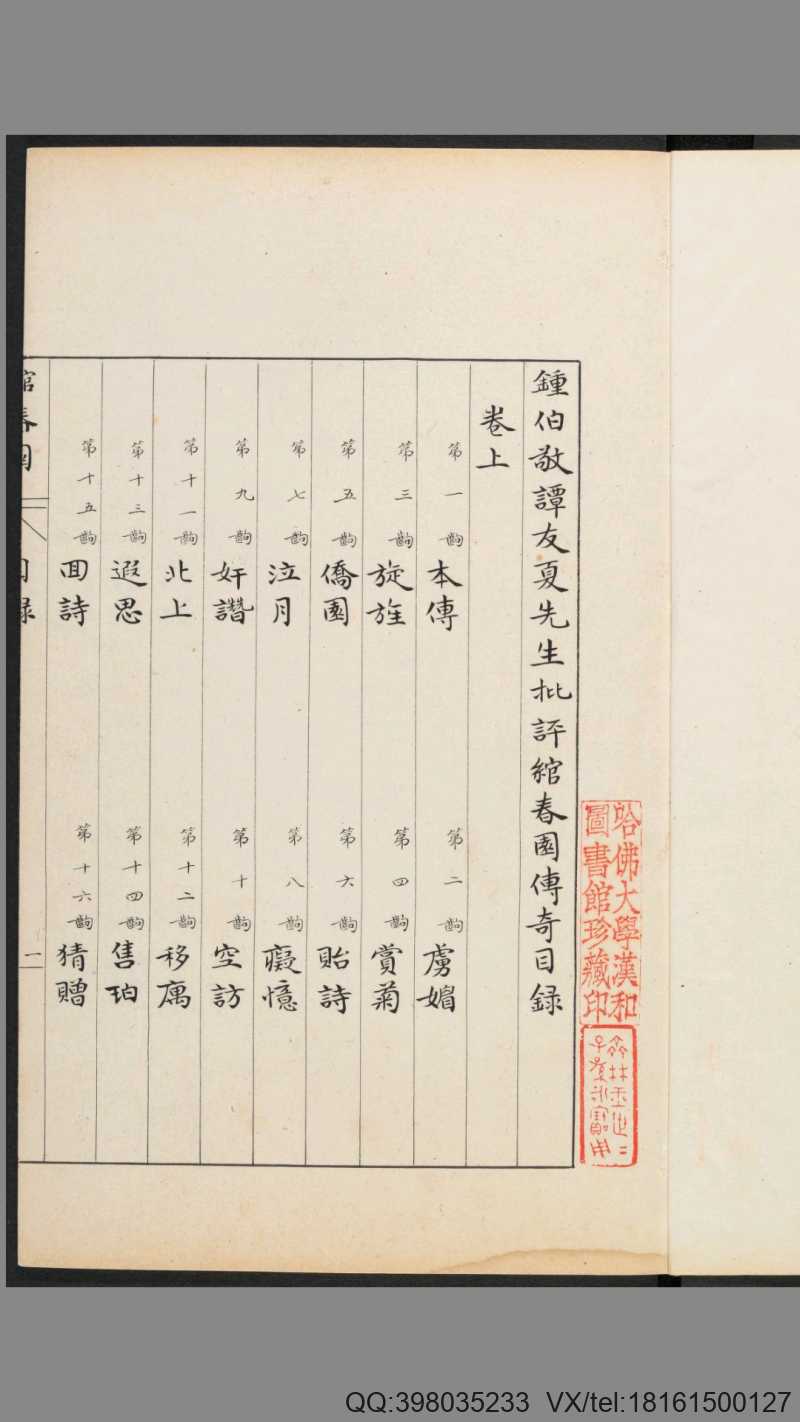 鍾伯敬譚友夏先生批評綰春園傳奇目録
卷上
第一齣 本傳 第二齣 虜媢
第三齣 旋旌 第四齣 賞菊
第五齣 僑園 第六齣 貽詩
第七齣 泣月 第八齣 癡憶
第九齣 奸讒 第十齣 空訪
第十一齣 北上 第十二齣 移寓
第十三齣 遐思 第十四齣 售珀
第十五齣 回詩 第十六齣 猜贈
春園
目録
一
哈佛大學漢和
圖書館珍藏印
QQ:398035233 VX/tel:18161500127